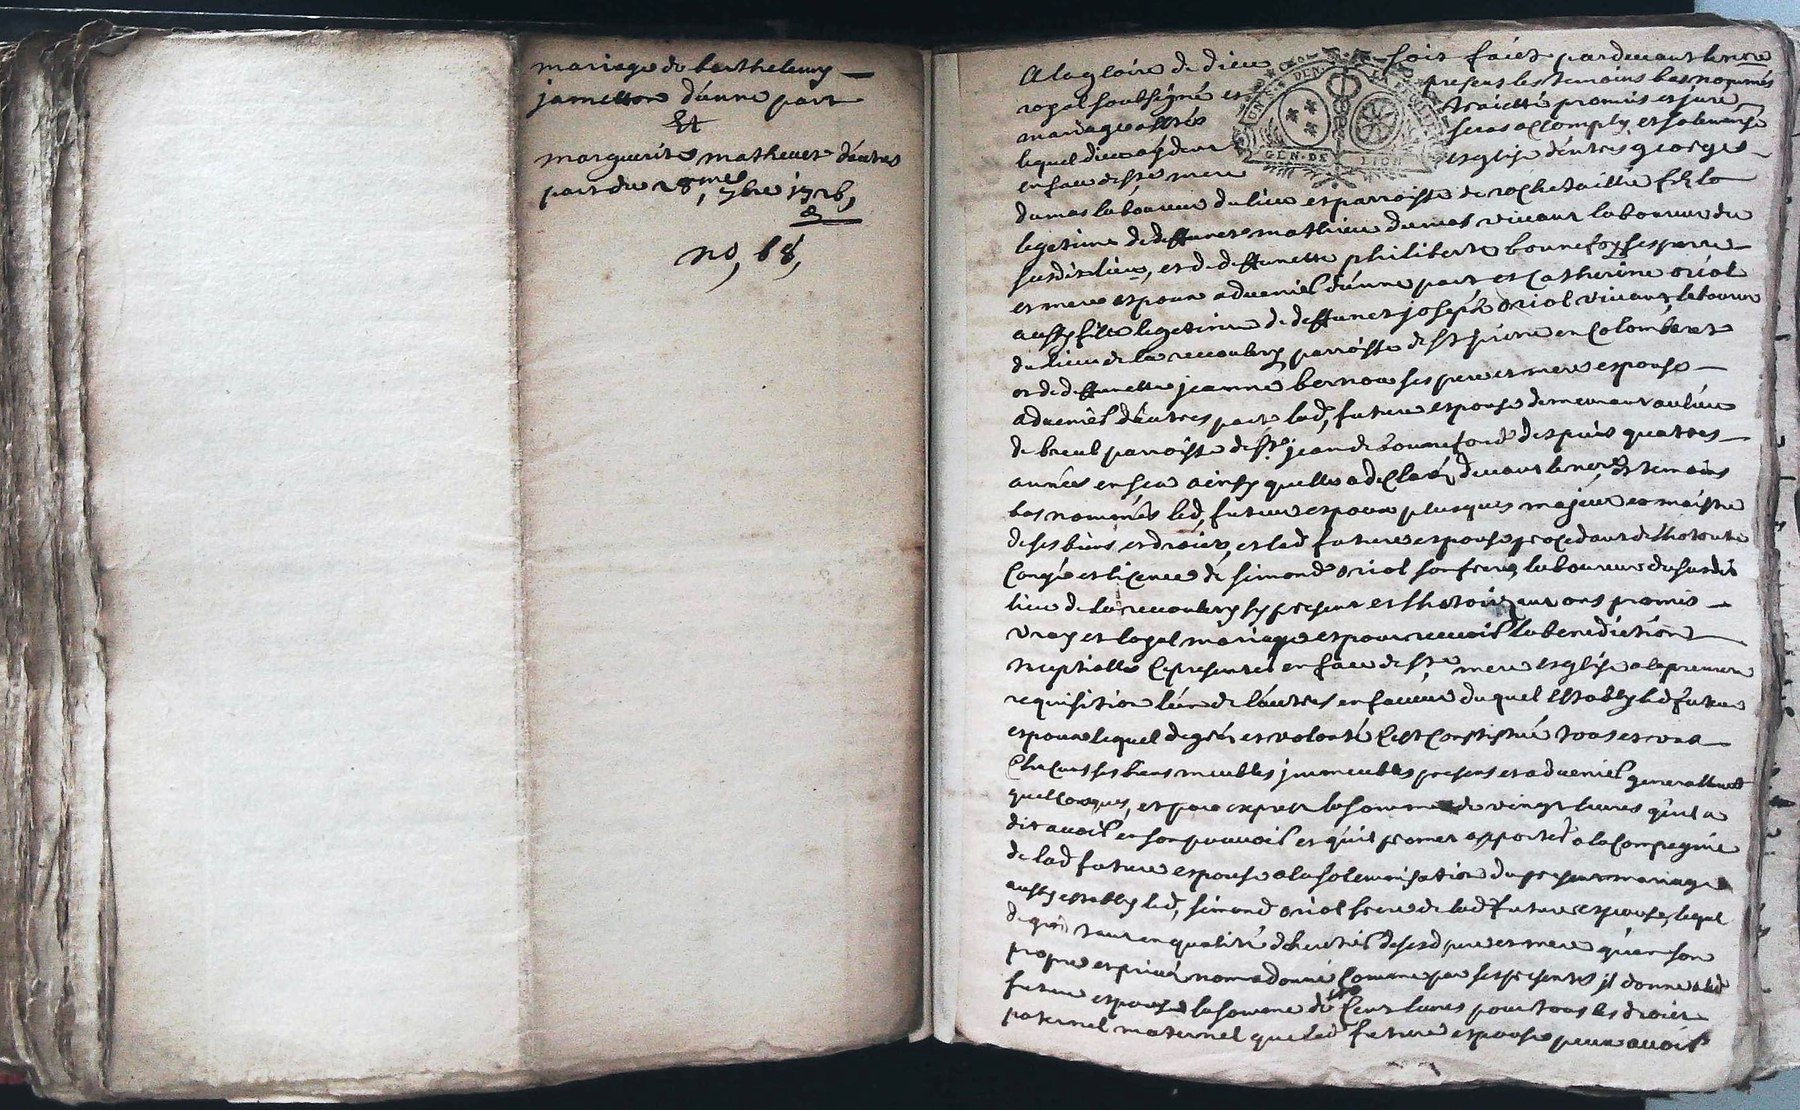 mariage de barthelemy
jametton d'une part
Et
marguerite mathevet d'autres
part du 28me 7bre 1726,
no, 68,
A la gloire de dieu soit faict par devant le nore
royal soubsigné et presens les temoins bas nommés
mariage a estés traicté promis et juré
lequel dieu aydant seras accomply et solemnisé
en face de ste mere esglise d'entres georges
dumas laboureur du lieu et parroisse de rochetaillié fils
legitime de deffunct mathieu dumas vivant laboureur du
susdit lieu, et de deffuncte philiberte bonnefoy ses pere
et mere espoux advenir d'une part et Catherine oriol
aussy fille legitime de deffunct joseph oriol vivant laboureur
du lieu de la parroisse de st pierre en Colombaret
et de deffuncte jeanne bernou ses pere et mere espouse
advenir d'autres part lad, future espouse demeurant au lieu
de breul parroisse de st jean de bonnefond despuis quatres
années en sca ainsy quelle a declaré devant le nore et temoins
bas nommés led, futur espoux plusques majeur et maistre
de ses biens et droicts, et lad future espouse procedant de l'hotorité
Congé et licence de simond oriol son frere, laboureur du susdit
lieu de la sy present et l'hotorizant ont promis
vray et loyal mariage et pour recevoir la benediction
nuptialle se presenter en face de ste mere esglise a la premiere
requisition l'un de l'autres en faveur duquel Establly led futur
espoux lequel de gré et volonté s'est Constitué tous et un a
Chacuns ses biens meubles jmmeubles presens et advenir generallement
quelconques, et par exprest la somme de vingt livres qu'il a
dit avoir en son pouvoir et qu'il promet apporter a la Compagnie
de lad future espouse a la solemnisation du present mariage
aussy establly led, simond oriol frere de lad future espouse, lequel
de gré tant en qualité d'heretier de sesd pere et mere qu'en son
propre et privé nom a donné Comme par ses presentes jl donne a lad
future espouse la somme de Cent livres pour tous les droicts
paternel maternel que lad future espouse peut avoir
GEN. DE LION